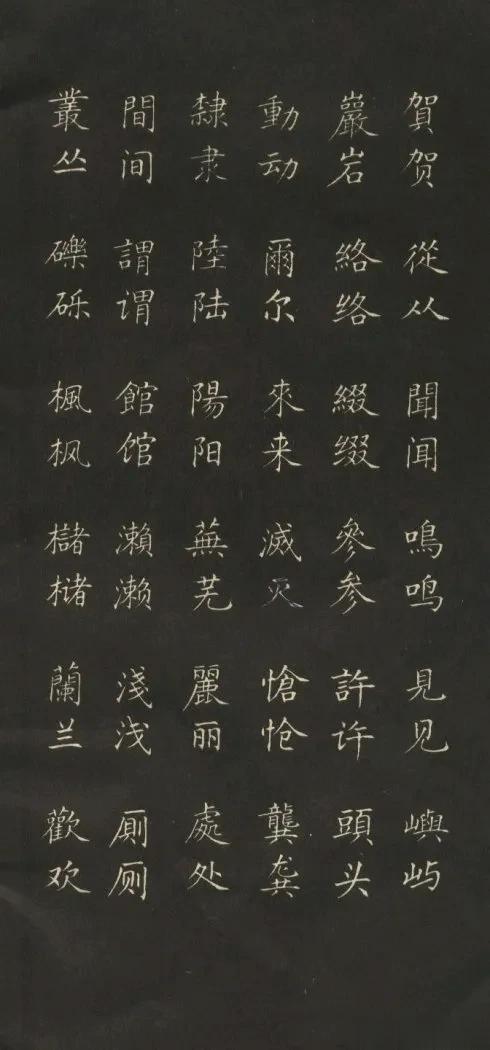 賀贺從从聞闻鳴鸣見见嶼屿
巖岩絡络綴缀參参許许頭头
動动爾尔來来滅灭愴怆龔龚
隸隶陸陆陽阳蕪芜麗丽處处
間间謂谓館馆瀨濑淺浅厠厕
叢丛礫砾楓枫櫧槠蘭兰歡欢